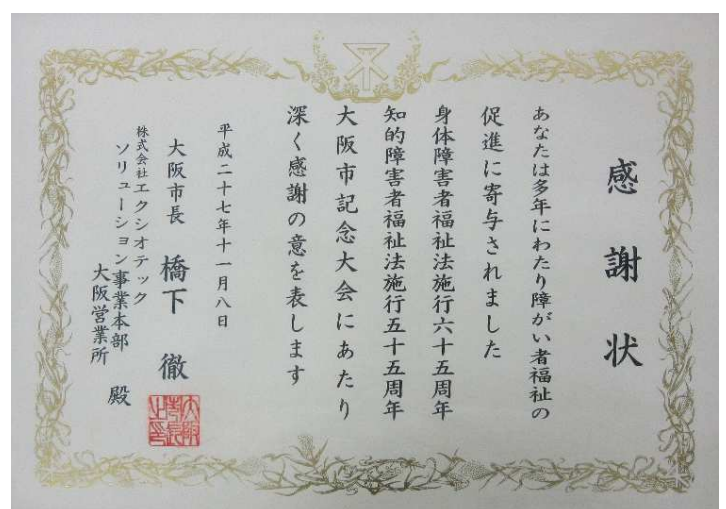 感謝状
あなたは多年にわたり障がい者福祉の
促進に寄与されました
身体障害者福祉法施行六十五周年
知的障害者福祉法施行五十五周年
大阪市記念大会にあたり
深く感謝の意を表します
平成二十七年十一月八日
大阪市長 橋下 徹
大阪市長之印
株式会社エクシオテック
ソリューション事業本部
大阪営業所 殿